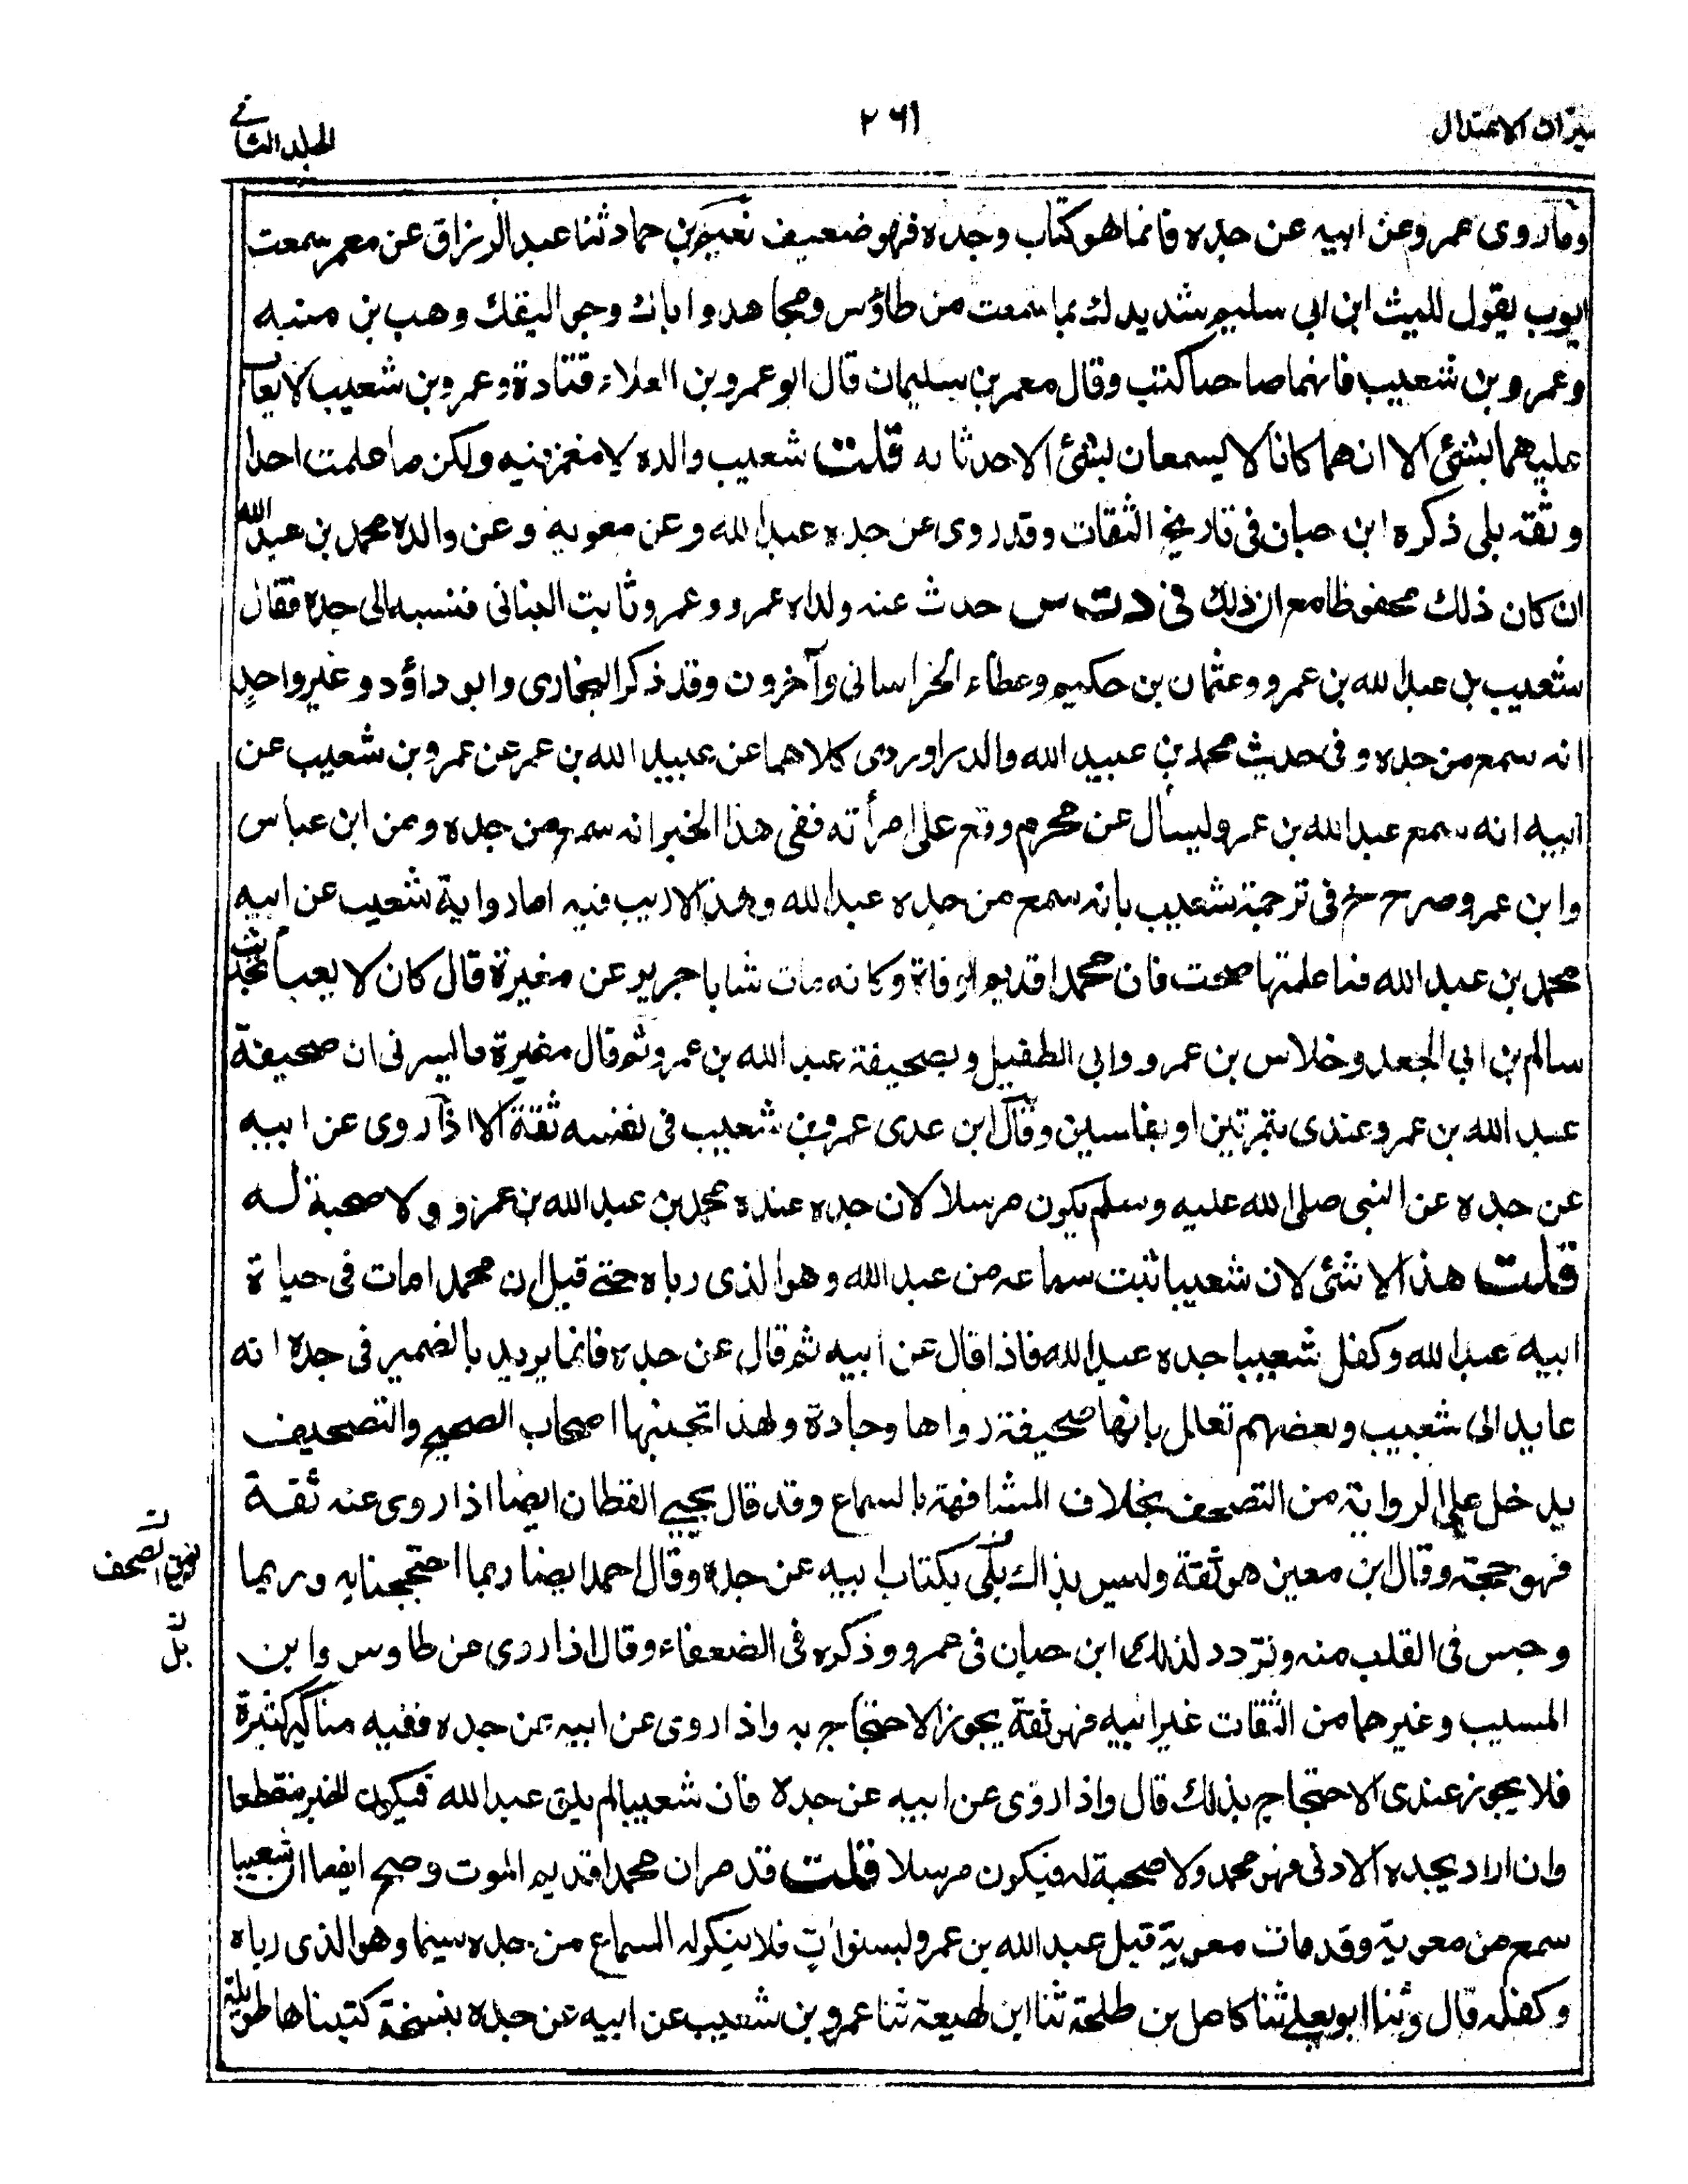 ميزان الاعتدال
٢٦١
الجلد الثانى
وما روى عمرو عن ابيه عن جده فانما هو كتاب وجده فهو ضعيف نعيم بن حماد ثنا عبد الرزاق عن معمر سمعت
ايوب يقول لليث ابن ابي سليم شد يدك بما سمعت من طاؤس ومجاهد واياك وجواليقك وهب بن منبه
وعمرو بن شعيب فانهما صاحبا كتب وقال معمر بن سليمان قال ابو عمرو بن العلاء قتادة وعمرو بن شعيب لا يعاب
عليهما بشئ الا انهما كانا لا يسمعان بشئ الا حدثا به قلت شعيب والده لا مغمز فيه ولكن ما علمت احدا
وثقه بلى ذكره ابن حبان فى تاريخ الثقات وقد روى عن جده عبد الله وعن معوية وعن والده محمد بن عبد الله
ان كان ذلك محفوظا مع ان ذلك فى د ت س حدث عنه ولداه عمرو وعمر وثابت البنانى فنسبه الى جده فقال
شعيب بن عبد الله بن عمرو وعثمان بن حكيم وعطاء الخراسانى وآخرون وقد ذكر البخارى وابو داؤد وغير واحد
انه سمع من جده وفى حديث محمد بن عبيد الله والدراوردى كلاهما عن عبيد الله بن عمر عن عمرو بن شعيب عن
ابيه انه سمع عبد الله بن عمرو ليسأل عن محرم وقع على امرأته ففى هذا الخبر انه سمع من جده ومن ابن عباس
وابن عمر وصرح خ فى ترجمة شعيب بانه سمع من جده عبد الله وهذا لا ريب فيه اما رواية شعيب عن ابيه
محمد بن عبد الله فما علمتها صحت فان محمدا قديم الوفاة وكانه مات شابا جرير عن مغيرة قال كان لا يعبأ بحديث
سالم بن ابي الجعد وخلاس بن عمرو وابي الطفيل وبصحيفة عبد الله بن عمرو ثم قال مغيرة ما يسرنى ان صحيفة
عبد الله بن عمرو عندى بتمرتين او بفلسين وقال ابن عدى عمرو بن شعيب فى نفسه ثقة الا اذا روى عن ابيه
عن جده عن النبى صلى الله عليه وسلم يكون مرسلا لان جده عنده محمد بن عبد الله بن عمرو ولا صحبة له
قلت هذا لا شئ لان شعيبا ثبت سماعه من عبد الله وهو الذى رباه حتى قيل ان محمدا مات فى حياة
ابيه عبد الله وكفل شعيبا جده عبد الله فاذا قال عن ابيه ثم قال عن جده فانما يريد بالضمير فى جده انه
عايد الى شعيب وبعضهم تعلل بانها صحيفة رواها وجادة ولهذا تجنبها اصحاب الصحيح والتصحيف
يدخل على الرواية من التصحف بخلاف المشافهة بالسماع وقد قال يحيى القطان ايضا اذا روى عنه ثقة
فهو حجة وقال ابن معين هو ثقة وليس بذاك بلى بكتاب ابيه عن جده وقال احمد ايضا ربما احتججنا به وربما
وجس فى القلب منه وتردد لذلك ابن حبان فى عمرو وذكره فى الضعفاء وقال اذا روى عن طاوس وابن
المسيب وغيرهما من الثقات غير ابيه فهو ثقة يجوز الاحتجاج به واذا روى عن ابيه عن جده ففيه مناكير كثيرة
فلا يجوز عندى الاحتجاج بذلك قال واذا روى عن ابيه عن جده فان شعيبا لم يلق عبد الله فيكون الخبر منقطعا
وان اراد بجده الادنى فهو محمد ولا صحبة له فيكون مرسلا قلت قد مر ان محمدا قديم الموت وصح ايضا ان شعيبا
سمع من معوية وقد مات معوية قبل عبد الله بن عمرو لبسنوات فلا ينكر له السماع من جده سيما وهو الذى رباه
وكفله قال وثنا ابو يعلى ثنا كامل بن طلحة ثنا ابن لهيعة ثنا عمرو بن شعيب عن ابيه عن جده بنسخة كتبناها طويلة
الصحف
بل